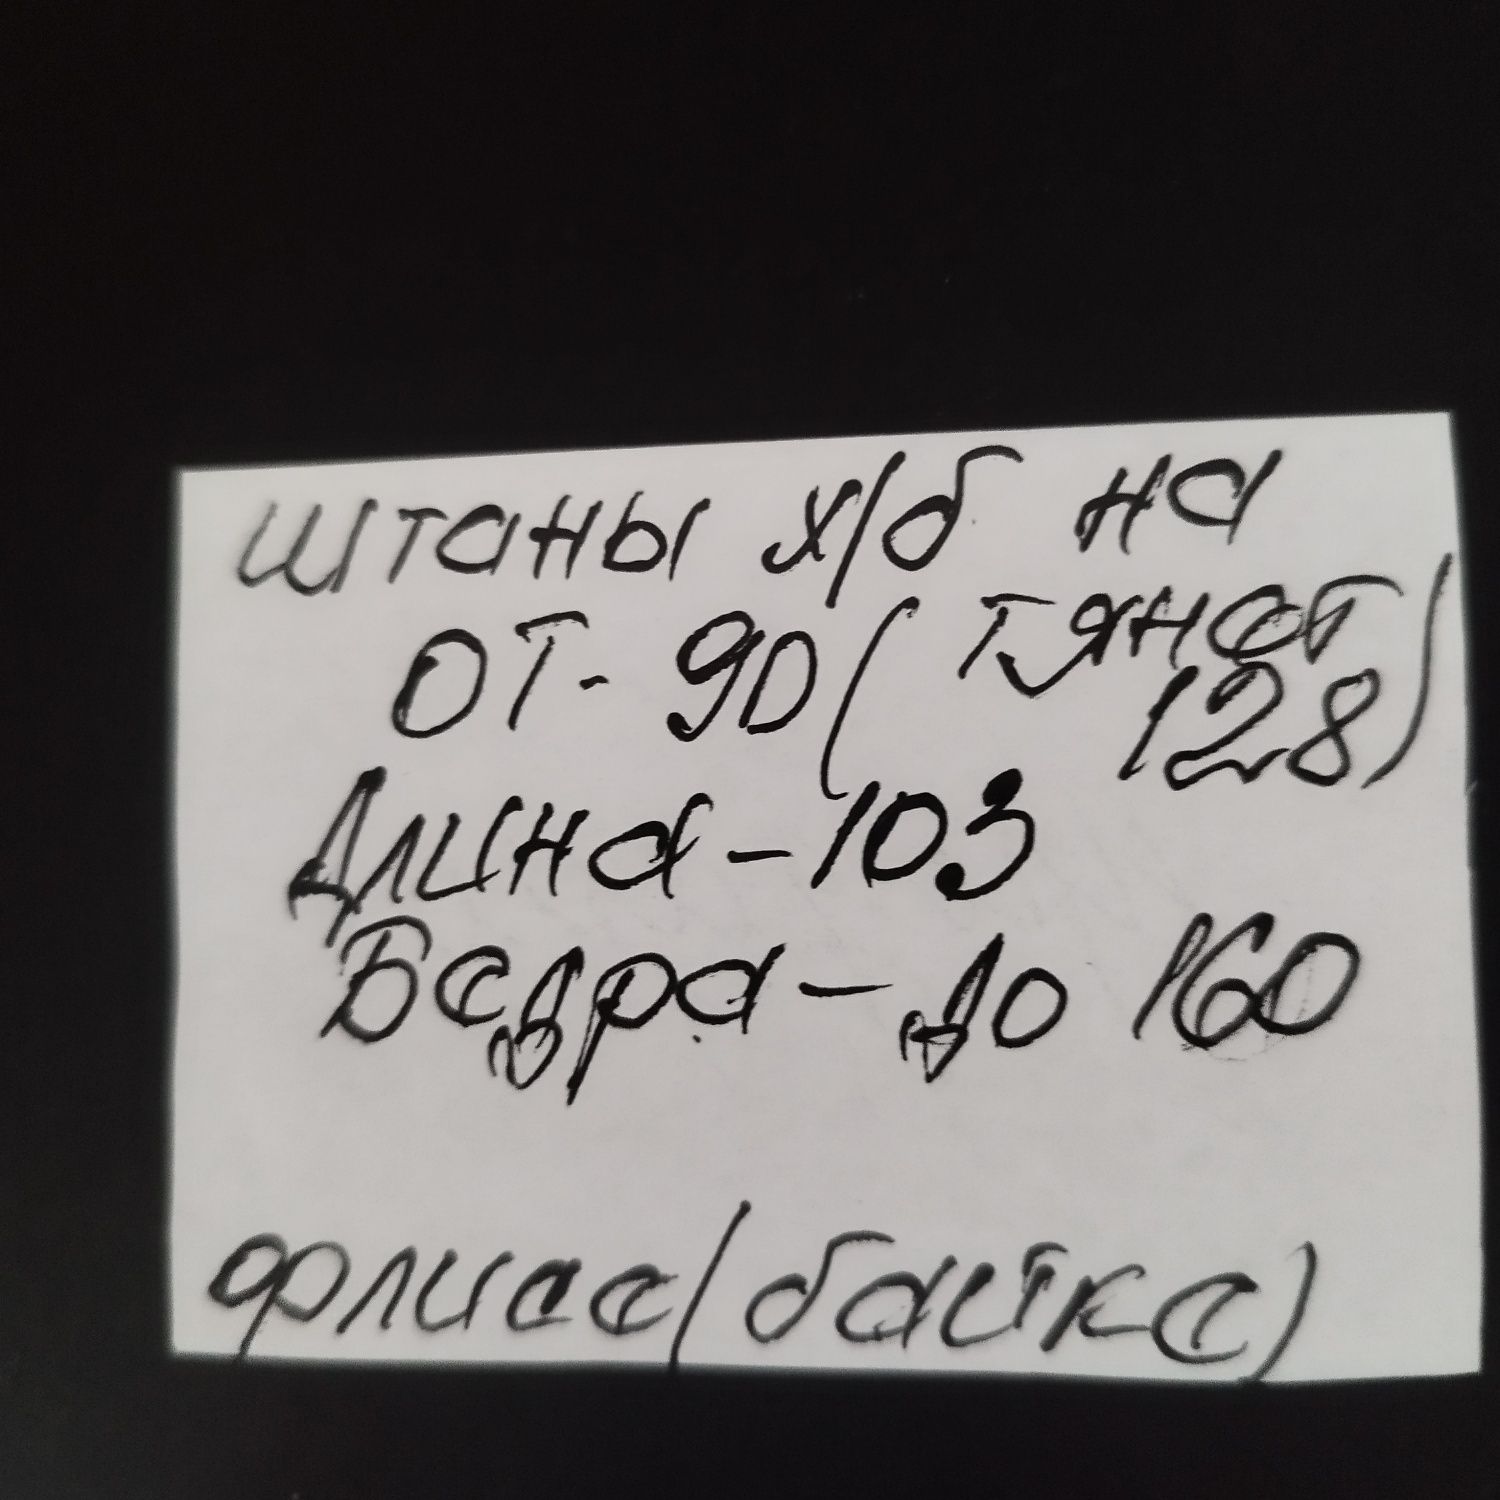 штаны х/б на
ОТ- 90 ( тянет
128)
Длина - 103
Бедра - до 160
флисс (байка)